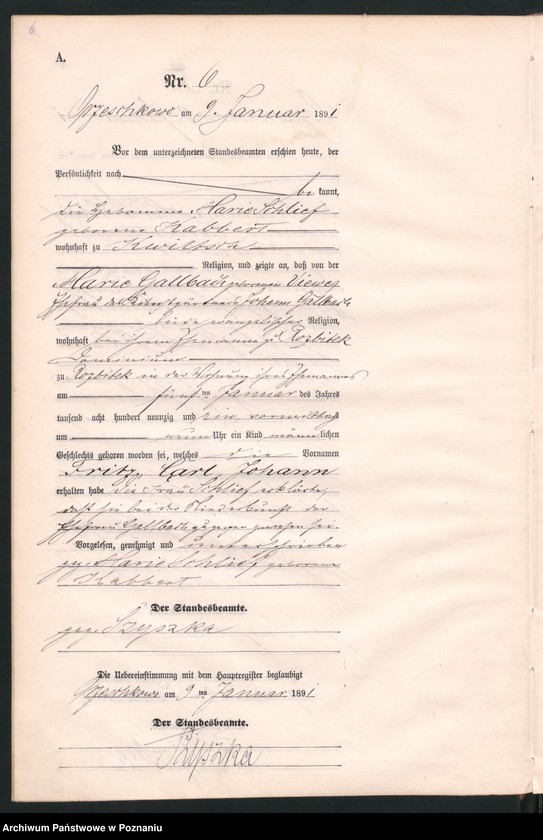 6
A.
Nr. 6
Orzeschkowo am 9. Januar 1891
Vor dem unterzeichneten Standesbeamten erschien heute, der
Persönlichkeit nach
be kannt,
die Hebamme Marie Schlief
geborene Kabbert
wohnhaft zu Kwiltsch
Religion, und zeigte an, daß von der
Marie Gallbach geborenen Vieweg
Ehefrau des Johann Gallbach
beide evangelischer Religion,
wohnhaft bei ihrem Ehemanne zu Rozbitek
Dominium
zu Rozbitek in der Wohnung ihres Ehemannes
am fünften Januar des Jahres
tausend acht hundert neunzig und ein, vormittags
um neun Uhr ein Kind männlichen
Geschlechts geboren worden sei, welches die Vornamen
Fritz, Carl, Johann
erhalten habe die Frau Schlief erklärte,
daß sie bei der Niederkunft der
Ehefrau Gallbach zugegen gewesen sei.
Vorgelesen, genehmigt und unterschrieben
gez. Marie Schlief geborene
Kabbert
Der Standesbeamte.
gez. Szyszka
Die Uebereinstimmung mit dem Hauptregister beglaubigt
Orzeschkowo am 9ten Januar 1891
Der Standesbeamte.
Szyszka
Archiwum Państwowe w Poznaniu